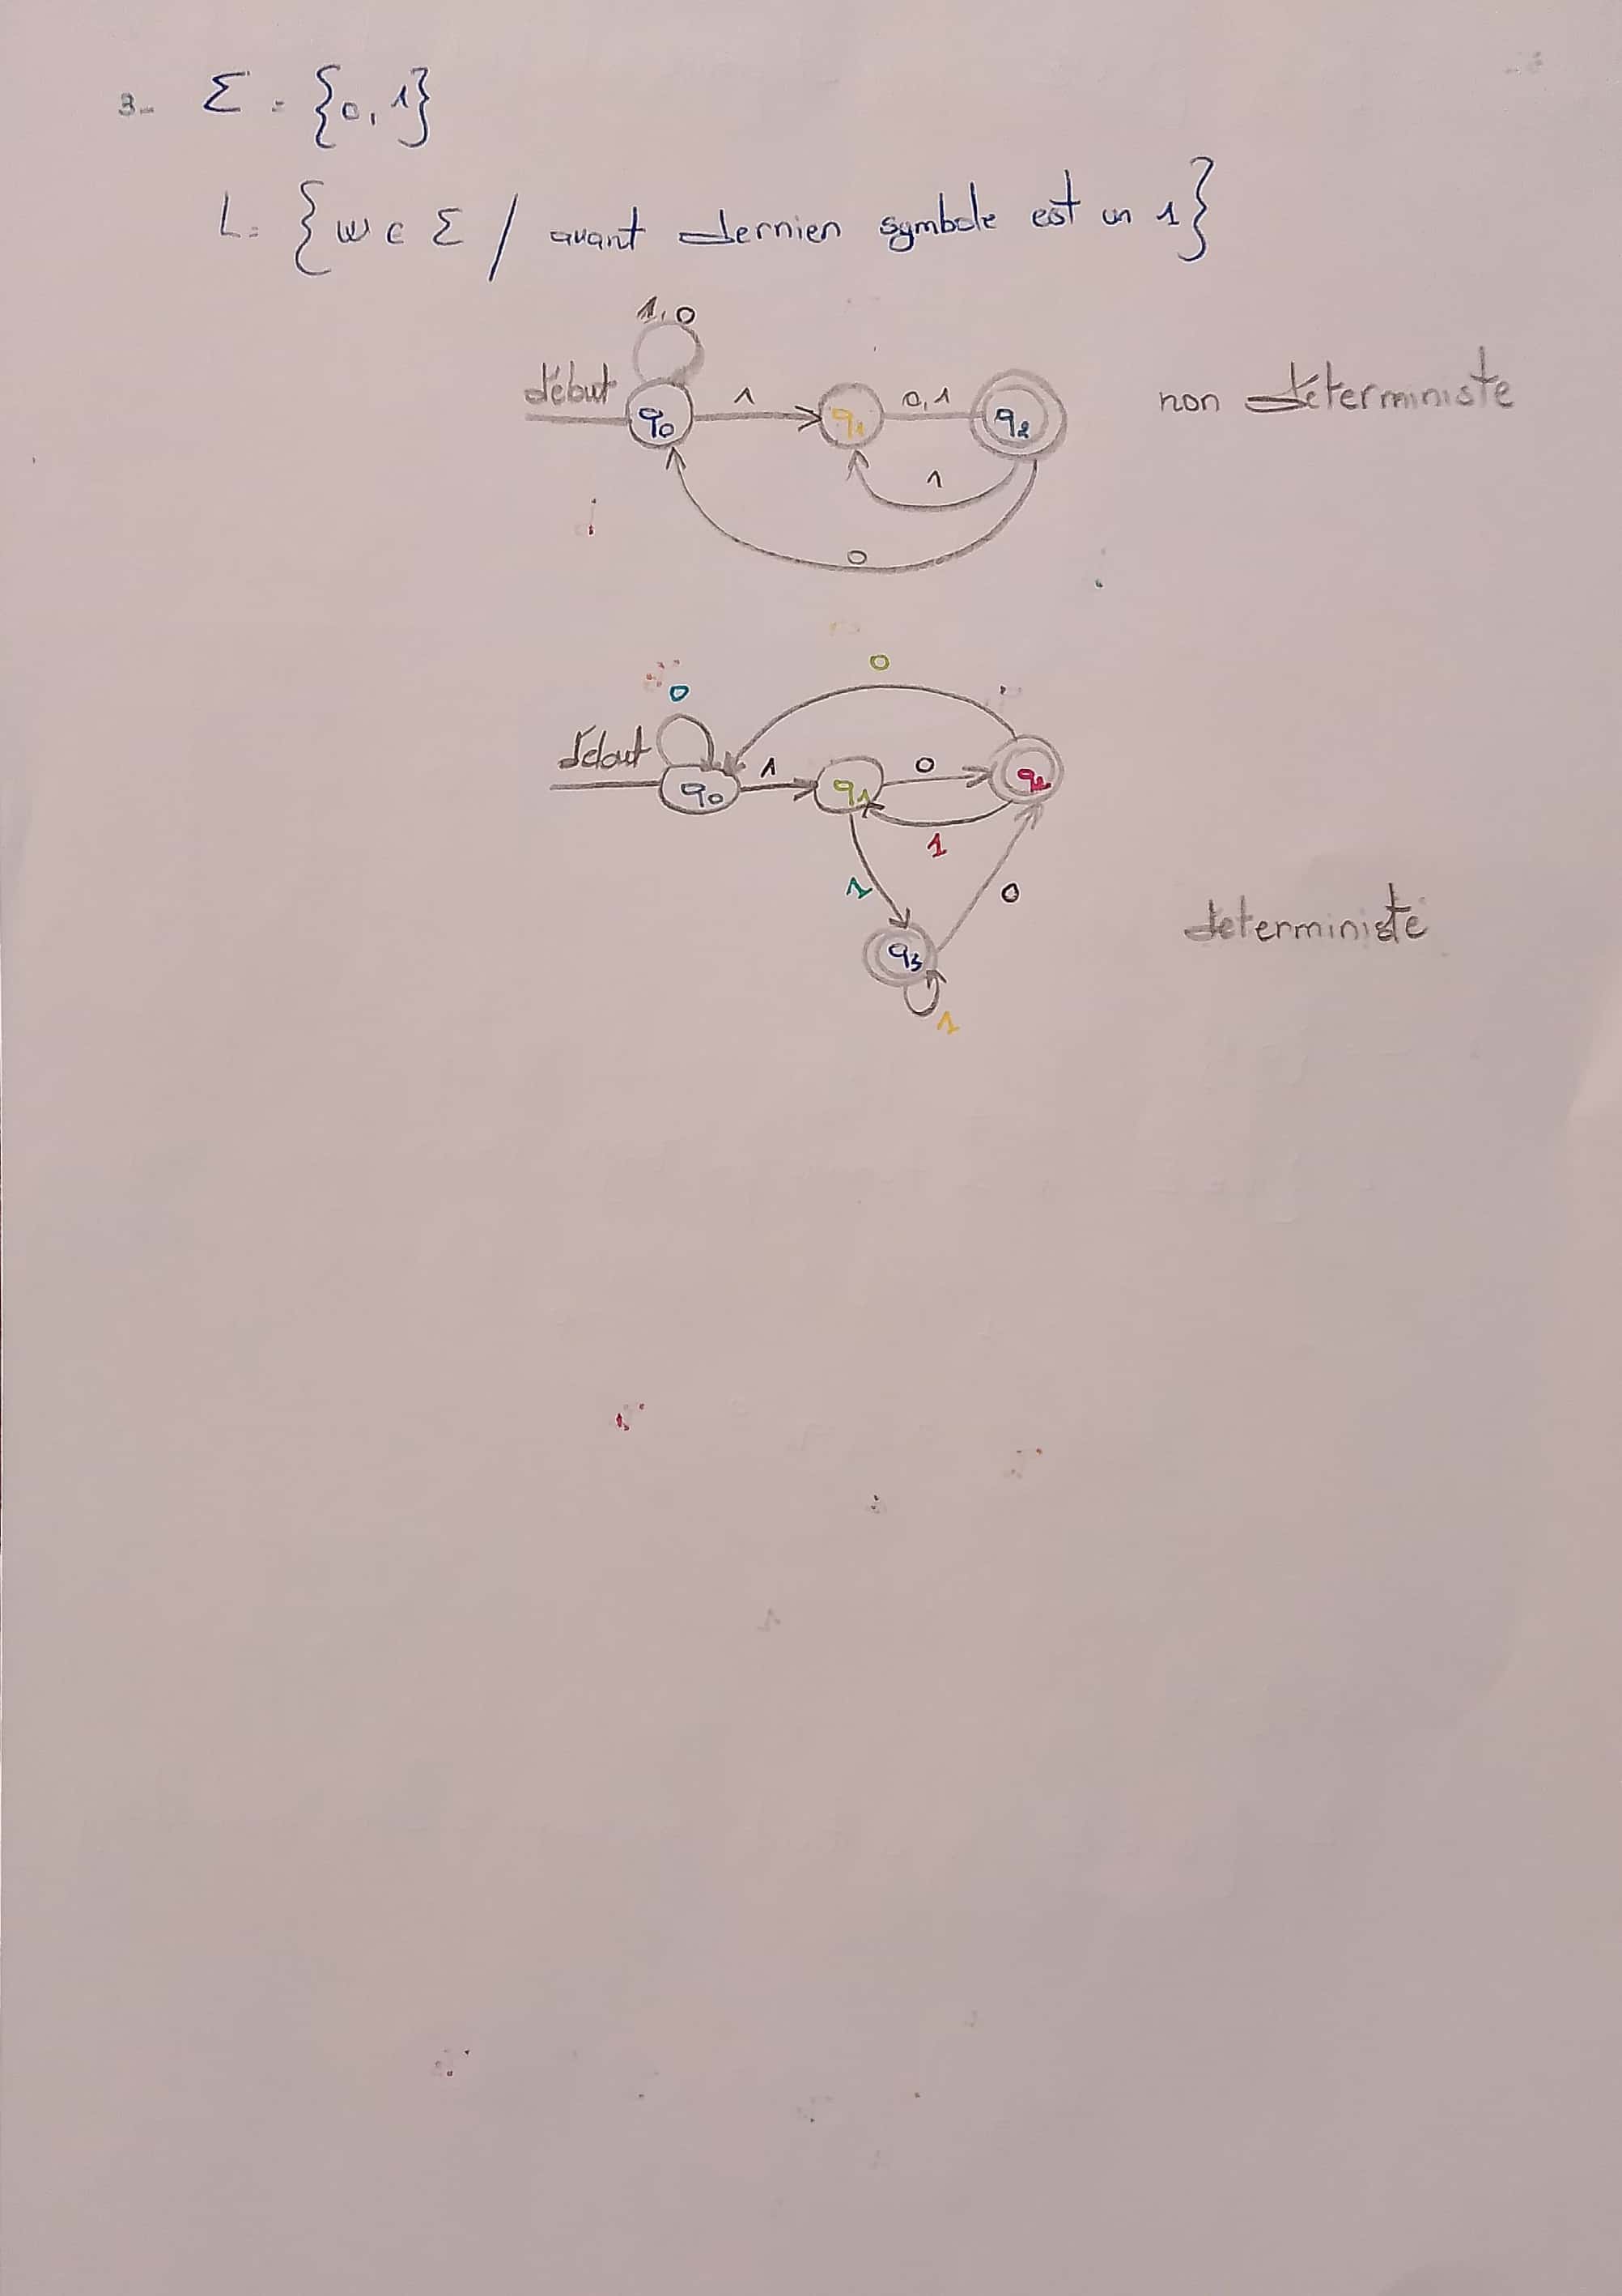 3- Σ = {0, 1}
L = {w ∈ Σ / avant dernien symbole est un 1}
1, 0
début q0 1 q1 0,1 q2 non déterministe
1
0
0
0
début q0 1 q1 0 q2
1
1 0
q3 deterministe
1